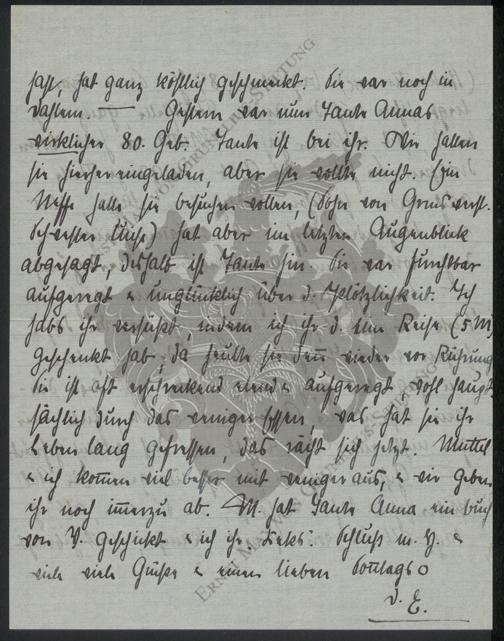 saft, hat ganz köstlich geschmeckt. Sie war noch in
Dahlem. — Gestern war nun Tante Annas
wirklicher 80. Geb. Tante ist bei ihr. Wir hatten
sie hierher eingeladen, aber sie wollte nicht. Ein
Neffe hatte sie besuchen wollen, (Sohn von verst.
Schwester Luise) hat aber im letzten Augenblick
abgesagt, deshalb ist Tante hin. Sie war furchtbar
aufgeregt & unglücklich über d. Plötzlichkeit. Ich
habs ihr versüßt, indem ich ihr d. Reise (5 M)
geschenkt hab, da heulte sie dann wieder vor Rührung
Sie ist oft erschreckend elend & aufgeregt, wohl haupt-
sächlich durch das weniger Essen, was hat sie ihr
Leben lang gefressen, das rächt sich jetzt. Muttel
& ich kommen viel besser mit weniger aus, & wir geben
ihr noch immerzu ab. M. hat Tante Anna ein Buch
von V. geschickt & ich ihr Keks. Schluß m. H. &
viele viele Grüße & einen lieben Sonntags o
D. E.
ERNST
STIFTUNG